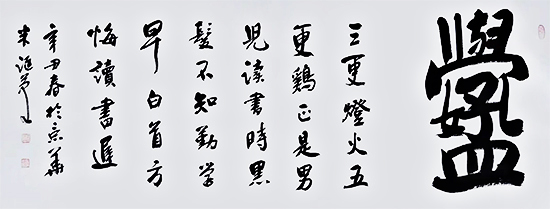 三更燈火五
更鷄正是男
児读書時黑
髮不知勤学
早白首方
悔讀書遲
辛丑春於京華